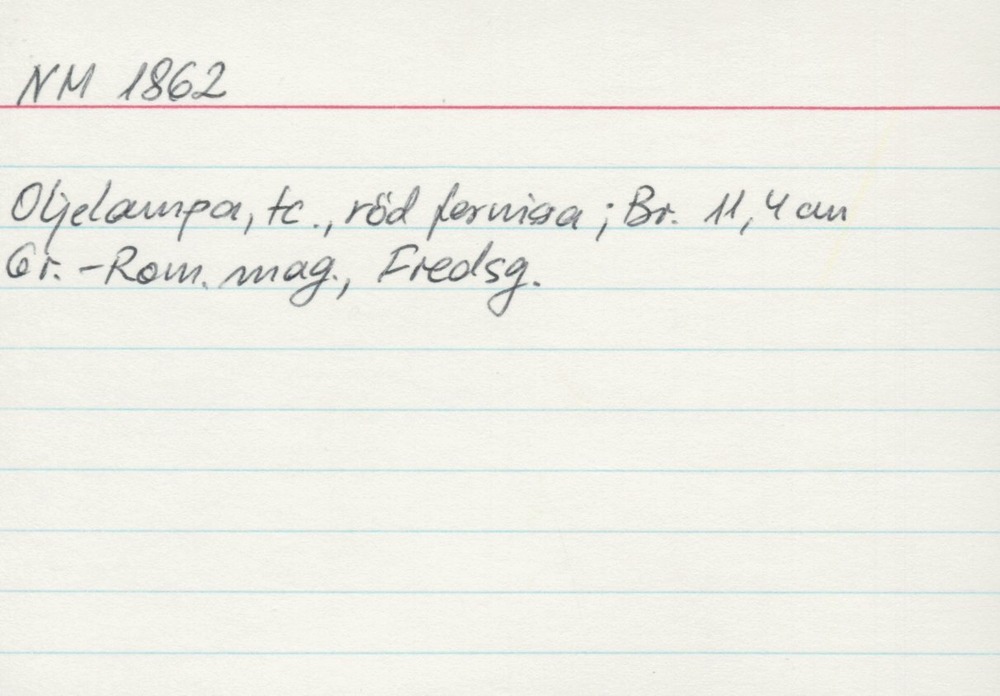 NM 1862
Oljelampa, tc., röd fernissa; Br. 11,4 cm
Gr.-Rom. mag., Fredsg.